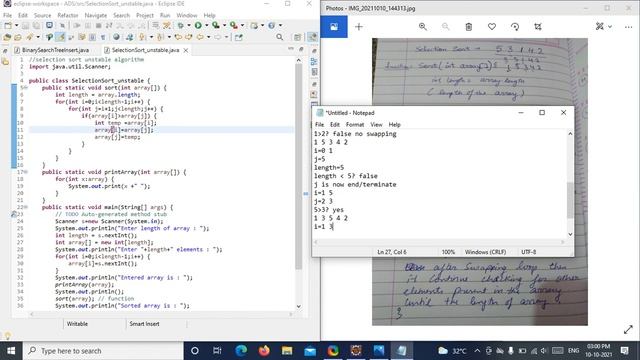 eclipse-workspace - ADS/src/SelectionSort_unstable.java - Eclipse IDE
File Edit Source Refactor Navigate Search Project Run Window Help
BinarySearchTreeInsert.java
SelectionSort_unstable.java
//selection sort unstable algorithm
import java.util.Scanner;
public class SelectionSort_unstable {
public static void sort(int array[]) {
int length = array.length;
for(int i=0;i<length-1;i++) {
for(int j=i+1;j<length;j++) {
if(array[i]>array[j]) {
int temp =array[i];
array[i]=array[j];
array[j]=temp;
}
}
}
}
public static void printArray(int array[]) {
for(int x:array) {
System.out.print(x +" ");
}
}
public static void main(String[] args) {
// TODO Auto-generated method stub
Scanner s=new Scanner(System.in);
System.out.println("Enter length of array : ");
int length = s.nextInt();
int array[] = new int[length];
System.out.println("Enter "+length+" elements : ");
for(int i=0;i<length;i++) {
array[i]=s.nextInt();
}
System.out.println("Entered array is : ");
printArray(array);
System.out.println();
sort(array); // function
System.out.println("Sorted array is : ");
Writable
Smart Insert
Photos - IMG_20211010_144313.jpg
Selection Sort → 5 3 1 4 2
int length = array length
(length of the array)
*Untitled - Notepad
File Edit Format View Help
1>2? false no swapping
1 5 3 4 2
i=0 1
j=5
length=5
length < 5? false
j is now end/terminate
i=1 5
j=2 3
5>3? yes
1 3 5 4 2
i=1 3
Ln 27, Col 6
100%
Windows (CRLF)
UTF-8
after swapping loop then
it continue checking for other
elements present in the array
until the length of array.
}
Type here to search
32°C
ENG
03:00 PM
10-10-2021